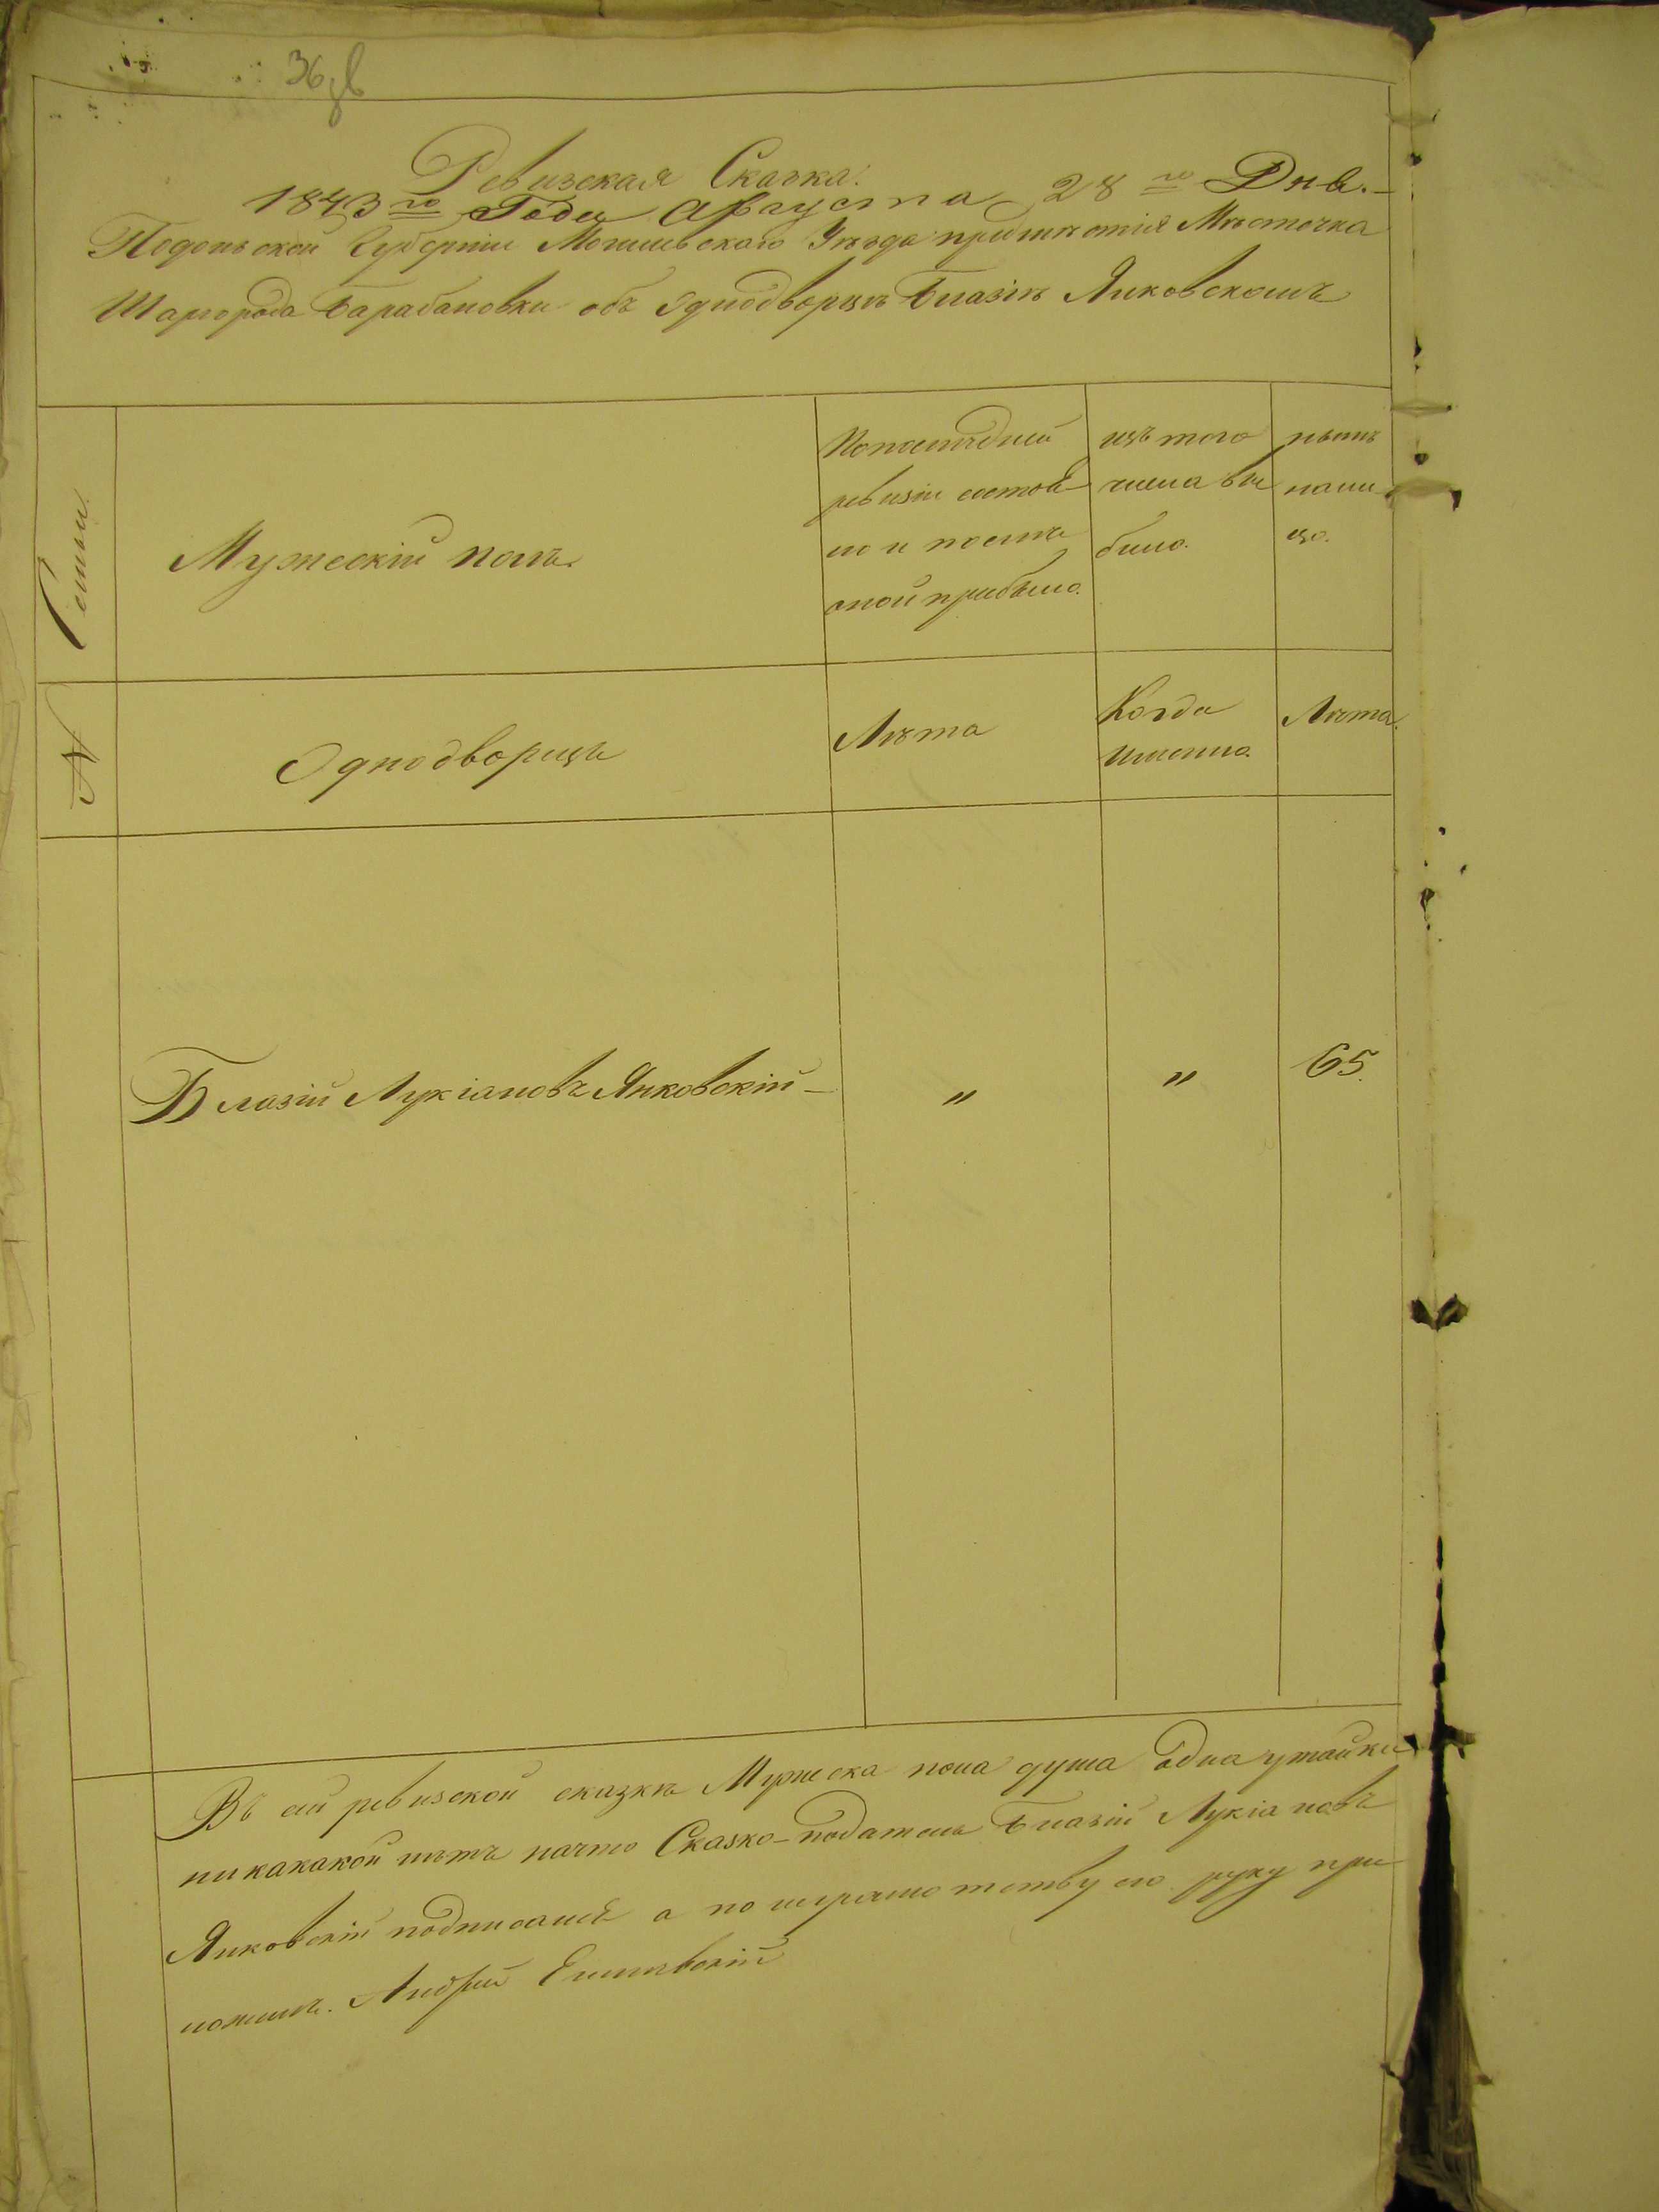 36
Ревизская Сказка.
1843го Года Августа 28го Дня.
Подольской Губерніи Могилевского Уѣзда предмѣстія Мѣсточка
Шаргорода Барабановки объ Однодворцѣ Блазіѣ Янковскомъ
№ Семьи
Мужескій полъ.
По последней
ревизіи состоя
ло и послѣ
оной прибыло.
изъ того
числа вы
было.
нынѣ
нали
цо.
Однодворцы
Лѣта
Когда
именно.
Лѣта.
Блазій Лукіановъ Янковскій — " " 65.
Въ сей ревизской сказкѣ Мужска пола душа одна утайки
никакакой нѣтъ начто Сказко-податель Блазій Лукіановъ
Янковскій подписалсѣ а по неграмотству его руку при
ложилъ. Андрей